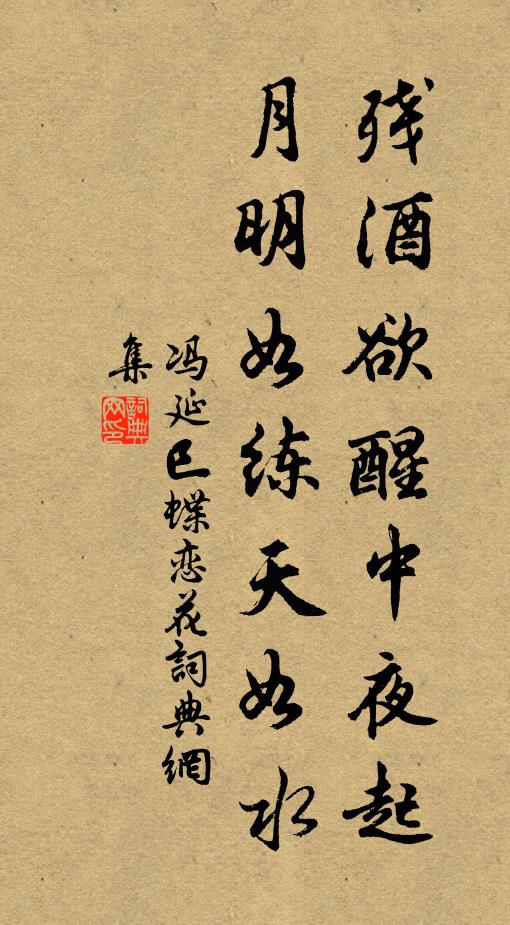 残酒欲醒中夜起
月明如练天如水
冯延巳蝶恋花詞典網
集
詞典
网印